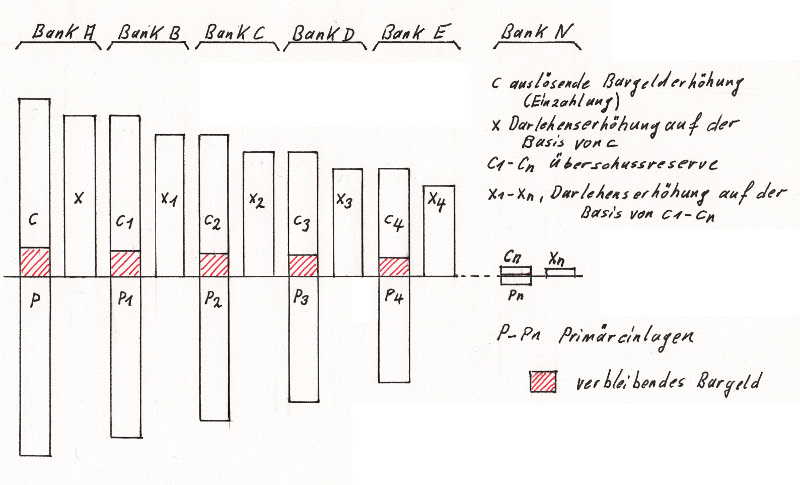 Bank A Bank B Bank C Bank D Bank E Bank N
C auslösende Bargelderhöhung
(Einzahlung)
x Darlehenserhöhung auf der
Basis von c
C1-Cn Überschussreserve
X1-Xn, Darlehenserhöhung auf der
Basis von C1-Cn
C X C1 X1 C2 X2 C3 X3 C4 X4
Cn Xn
P P1 P2 P3 P4 Pn
P-Pn Primäreinlagen
verbleibendes Bargeld